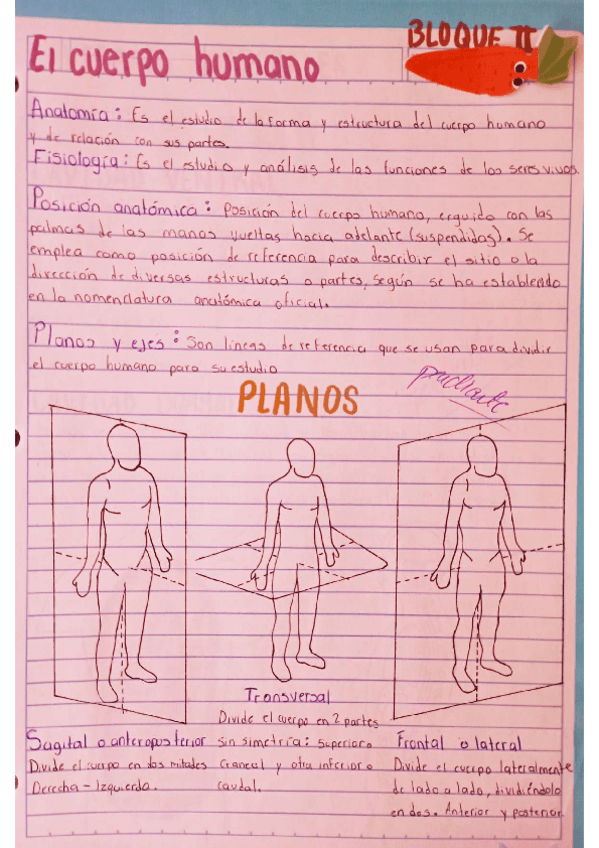 BLOQUE II
El cuerpo humano
Anatomía: Es el estudio de la forma y estructura del cuerpo humano
y de relación con sus partes.
Fisiología: Es el estudio y análisis de las funciones de los seres vivos.
Posición anatómica: Posición del cuerpo humano, erguido con las
palmas de las manos vueltas hacia adelante (suspendidas). Se
emplea como posición de referencia para describir el sitio o la
dirección de diversas estructuras o partes, según se ha establecido
en la nomenclatura anatómica oficial.
Planos y ejes: Son líneas de referencia que se usan para dividir
el cuerpo humano para su estudio
PLANOS
Transversal
Divide el cuerpo en 2 partes
sin simetría: Superior o
Craneal y otra inferior o
caudal.
Sagital o anteroposterior
Divide el cuerpo en dos mitades
Derecha - Izquierda.
Frontal o lateral
Divide el cuerpo lateralmente
de lado a lado, dividiéndolo
en dos. Anterior y posterior